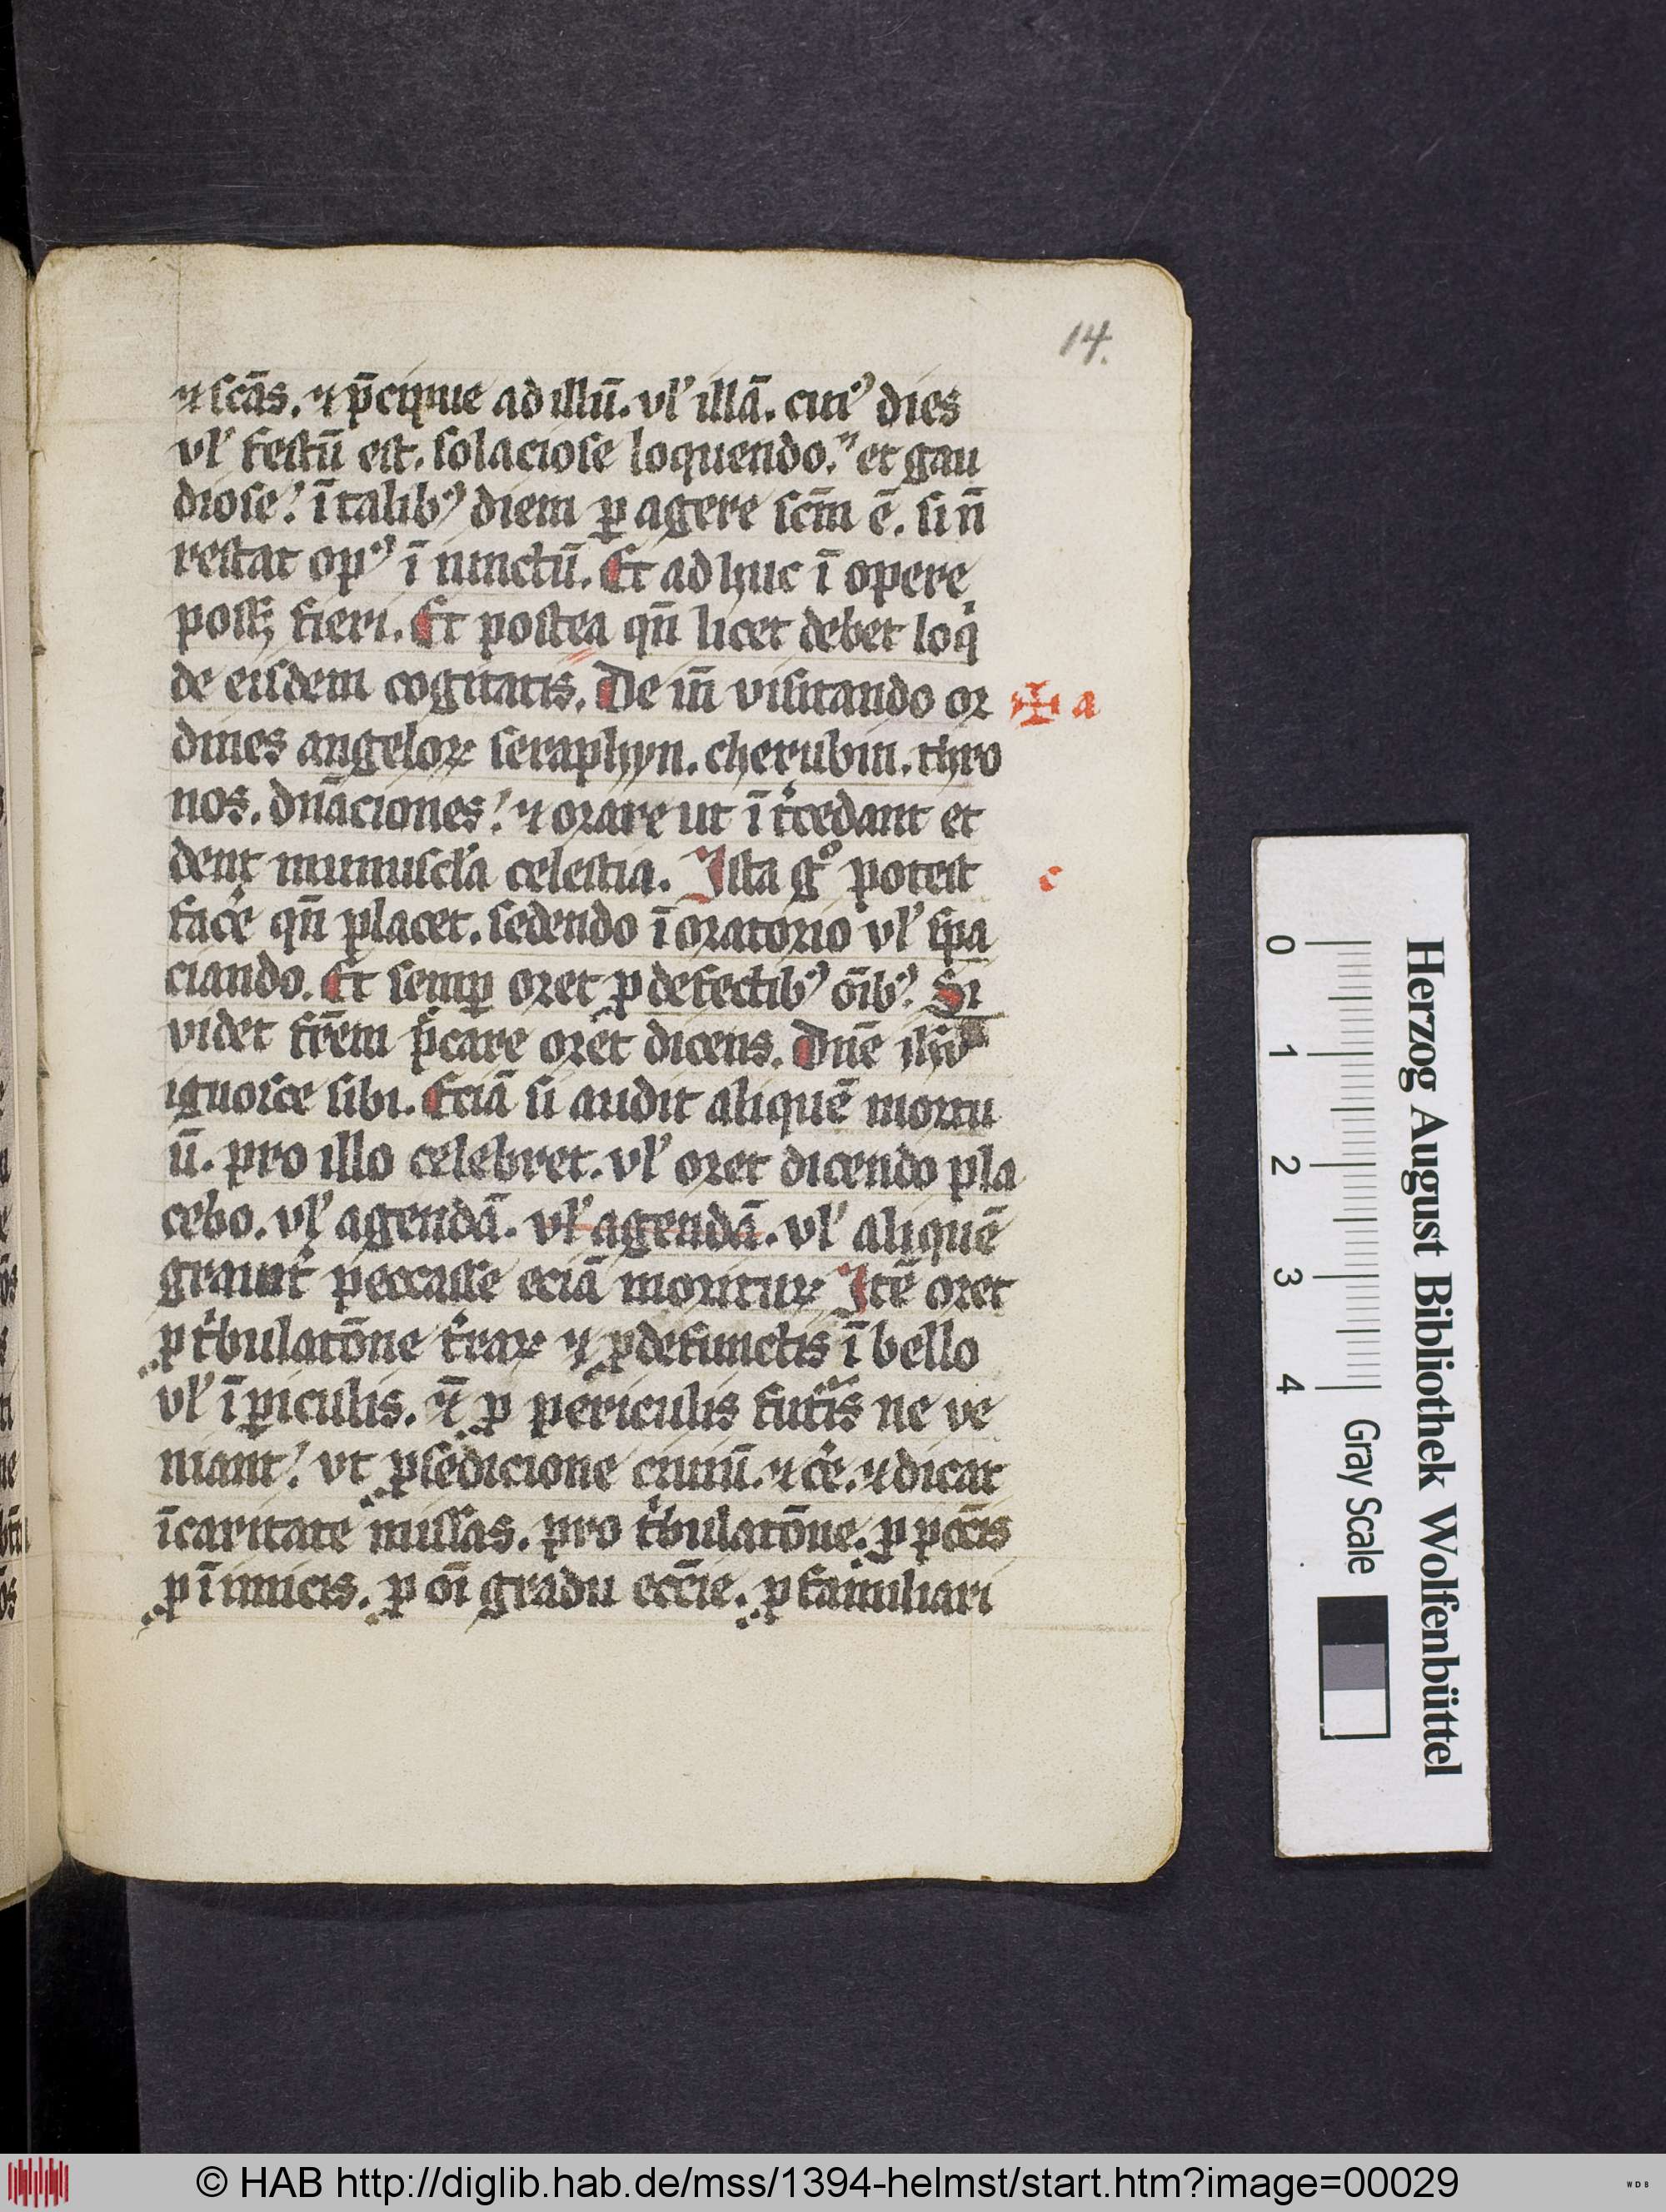 14.
⁊ scās. ⁊ p̄cipue ad illū. vl' illā. cui⁹ dies
vl' festū est. solaciose loquendo." et gau
diose! ī talib⁹ diem ꝑ agere scm̄ ē. si n̄
restat op⁹ ī iunctū. Et adhuc ī opere
possꝫ fieri. Et postea qn̄ licet debet loqͥ
de eisdem cogitatis. De in̄ visitando or ✠ a
dines angeloꝝ seraphyn. cherubin. thro
nos. dn̄aciones! ⁊ orare ut ī t͛cedant et
dent munuscl'a celestia. Ista gͦ potest c
fac͛e qn̄ placet. sedendo ī oratorio vl' spa
ciando. Et semꝑ oret ꝓ defectib⁹ oīb⁹. Si
videt fr̄em p͛care oret dicens. Dn̄e ihū
ignosce sibi. Eciā si audit aliquē mortu
ū. pro illo celebret. vl' oret dicendo pla
cebo. vl' agendā. vl' agendā. vl' aliquē
grauit͛ peccasse eciā morituꝝ Itē oret
ꝓ t͛bulatōne t͛raꝝ ⁊ ꝓ defunctis ī bello
vl' ī ꝑiculis. ⁊̄ ꝓ periculis futͥis ne ve
niant! vt ꝓ sedicione ciuiū. ⁊ c͛e. ⁊ dicat
ī caritate missas. pro t͛bulatōne. ꝓ pcc̄is
ꝓ ī imicis. ꝓ oī gradu ecc̄ie. ꝓ familiari
Herzog August Bibliothek Wolfenbüttel
0 1 2 3 4 Gray Scale
© HAB http://diglib.hab.de/mss/1394-helmst/start.htm?image=00029
WDB